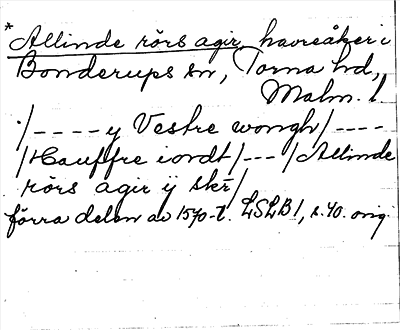 *Allinde rörs agir, havreåker i
Bonderups sn, Torna hd,
Malm. l
·/----y Vestre wongh/----
/Hauffre iordt/---/Allinde
rörs agir ij skr/
förra delen av 1570-t. LSLB1, s. 40. orig